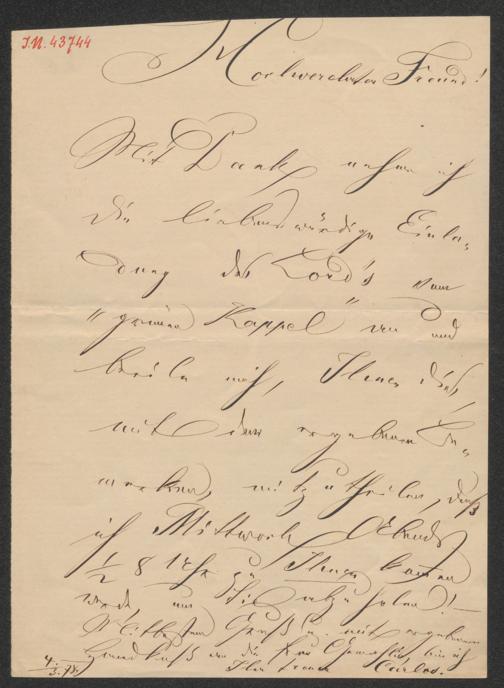 I.N. 43744
Hochverehrter Freund!
Mit Dank nehme ich
die liebenswürdige Einla-
dung des Lord's vom
"grünen Kappel" an und
beeile mich, Ihnen dies,
mit dem ergebenen Be-
merken, mitzutheilen, daß
ich Mittwoch Abends
½ 8 Uhr zu Ihnen kommen
werde, um Sie abzuholen! —
Mit bestem Gruß u. mit ergebenem
Handkuß an die Frau Gemahlin bin ich
4/3.78. Ihr treuer Carlos.